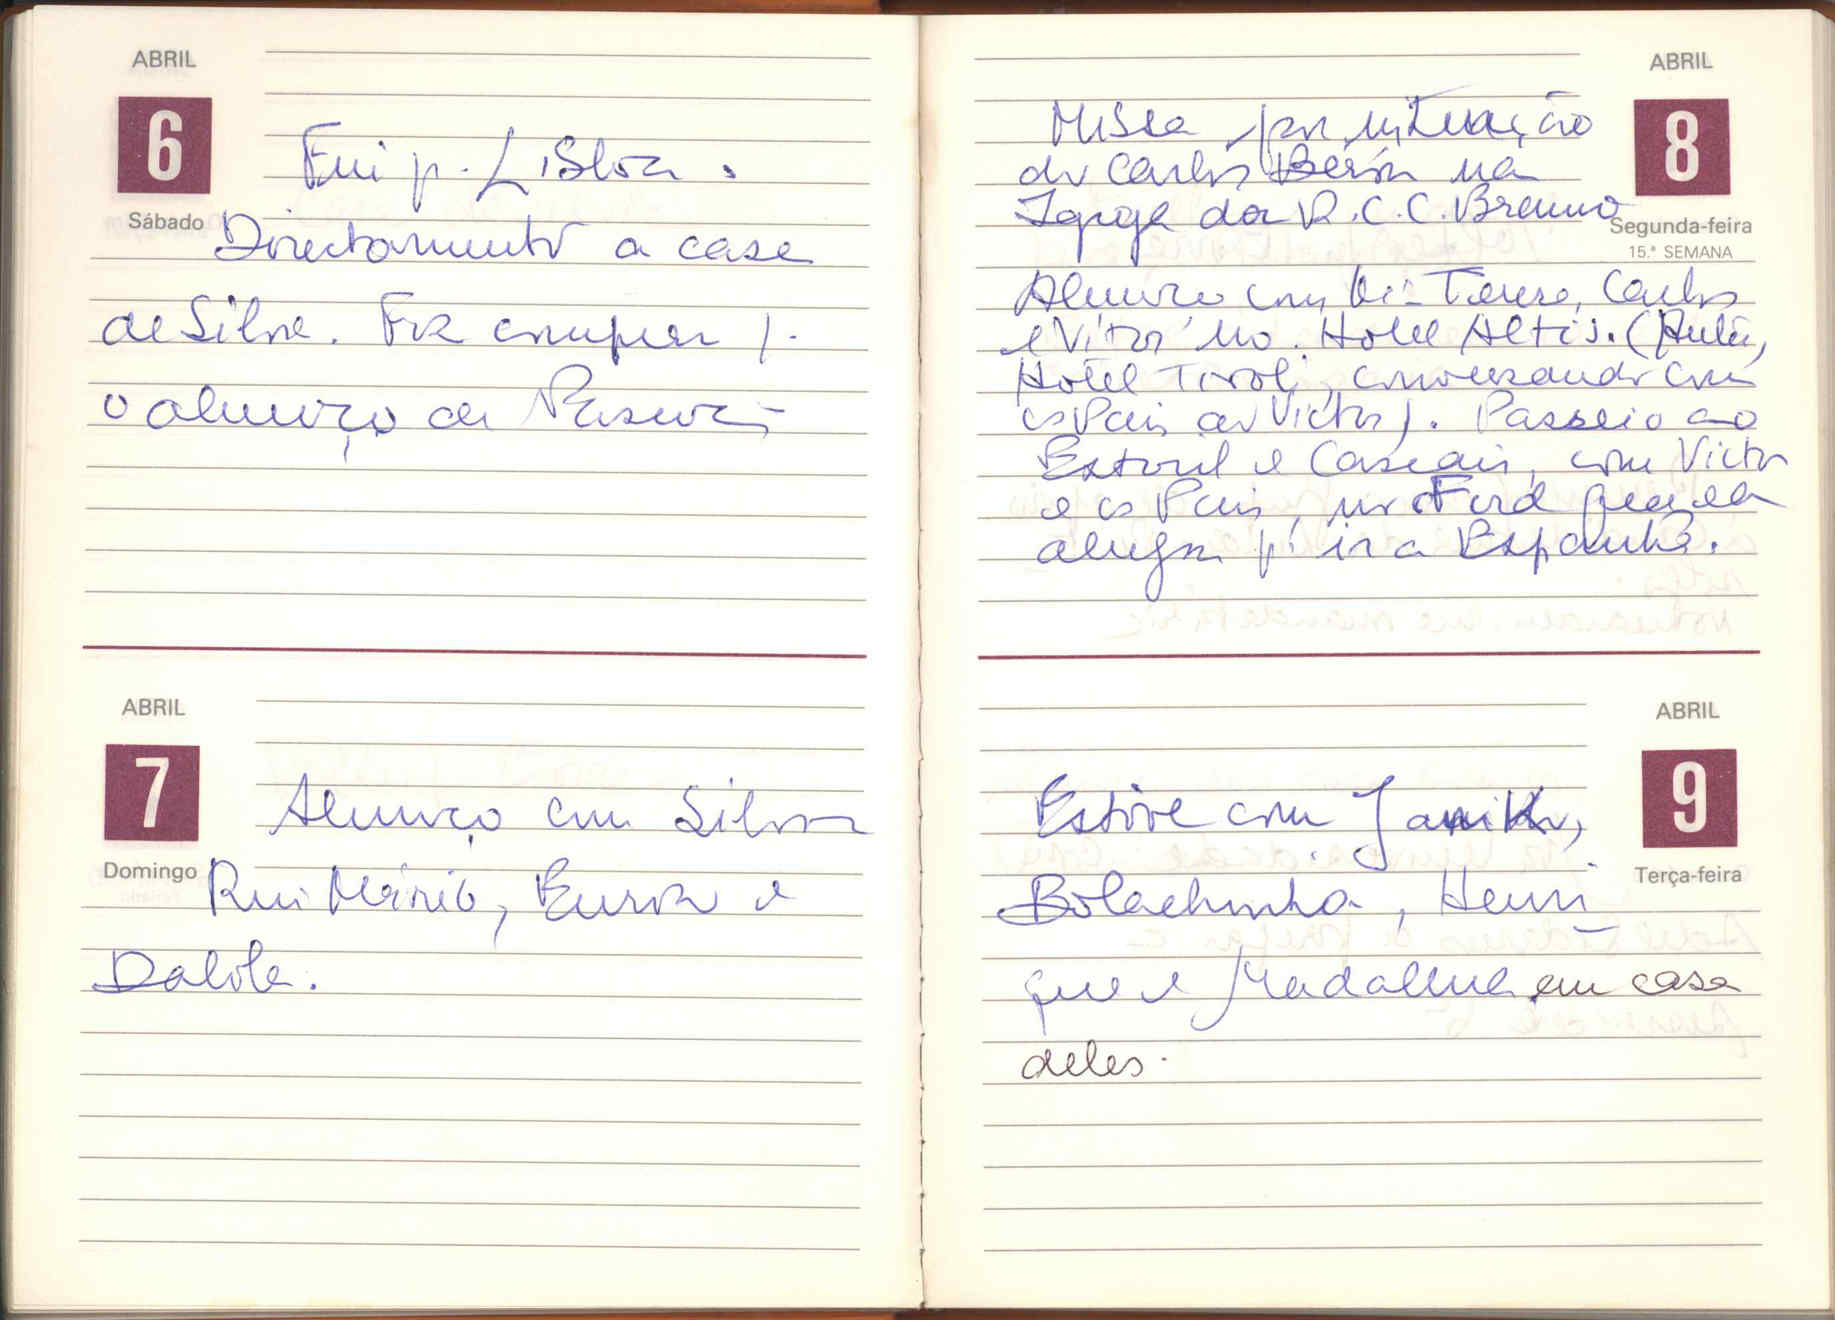 ABRIL
6
Sábado
Fui p. Lisboa.
Directamente a casa
de Silva. Fiz compras p.
o almoço da Páscoa
ABRIL
7
Domingo
Almoço com Silva
Rui Mário, Eurico e
Dalila.
ABRIL
8
Segunda-feira
15.ª SEMANA
Missa por intenção
do Carlos na
Igreja da R. C. C. Branco
Almoço com Teresa, Carlos
e Vitor no Hotel Altis. (Antes,
Hotel Tivoli, conversando com
os Pais do Victor). Passeio ao
Estoril e Cascais, com Victor
e os Pais, no Ford que ela
alugou p. ir a Espanha.
ABRIL
9
Terça-feira
Estive com
Bolachinha, Henri
que e Madalena em casa
deles.